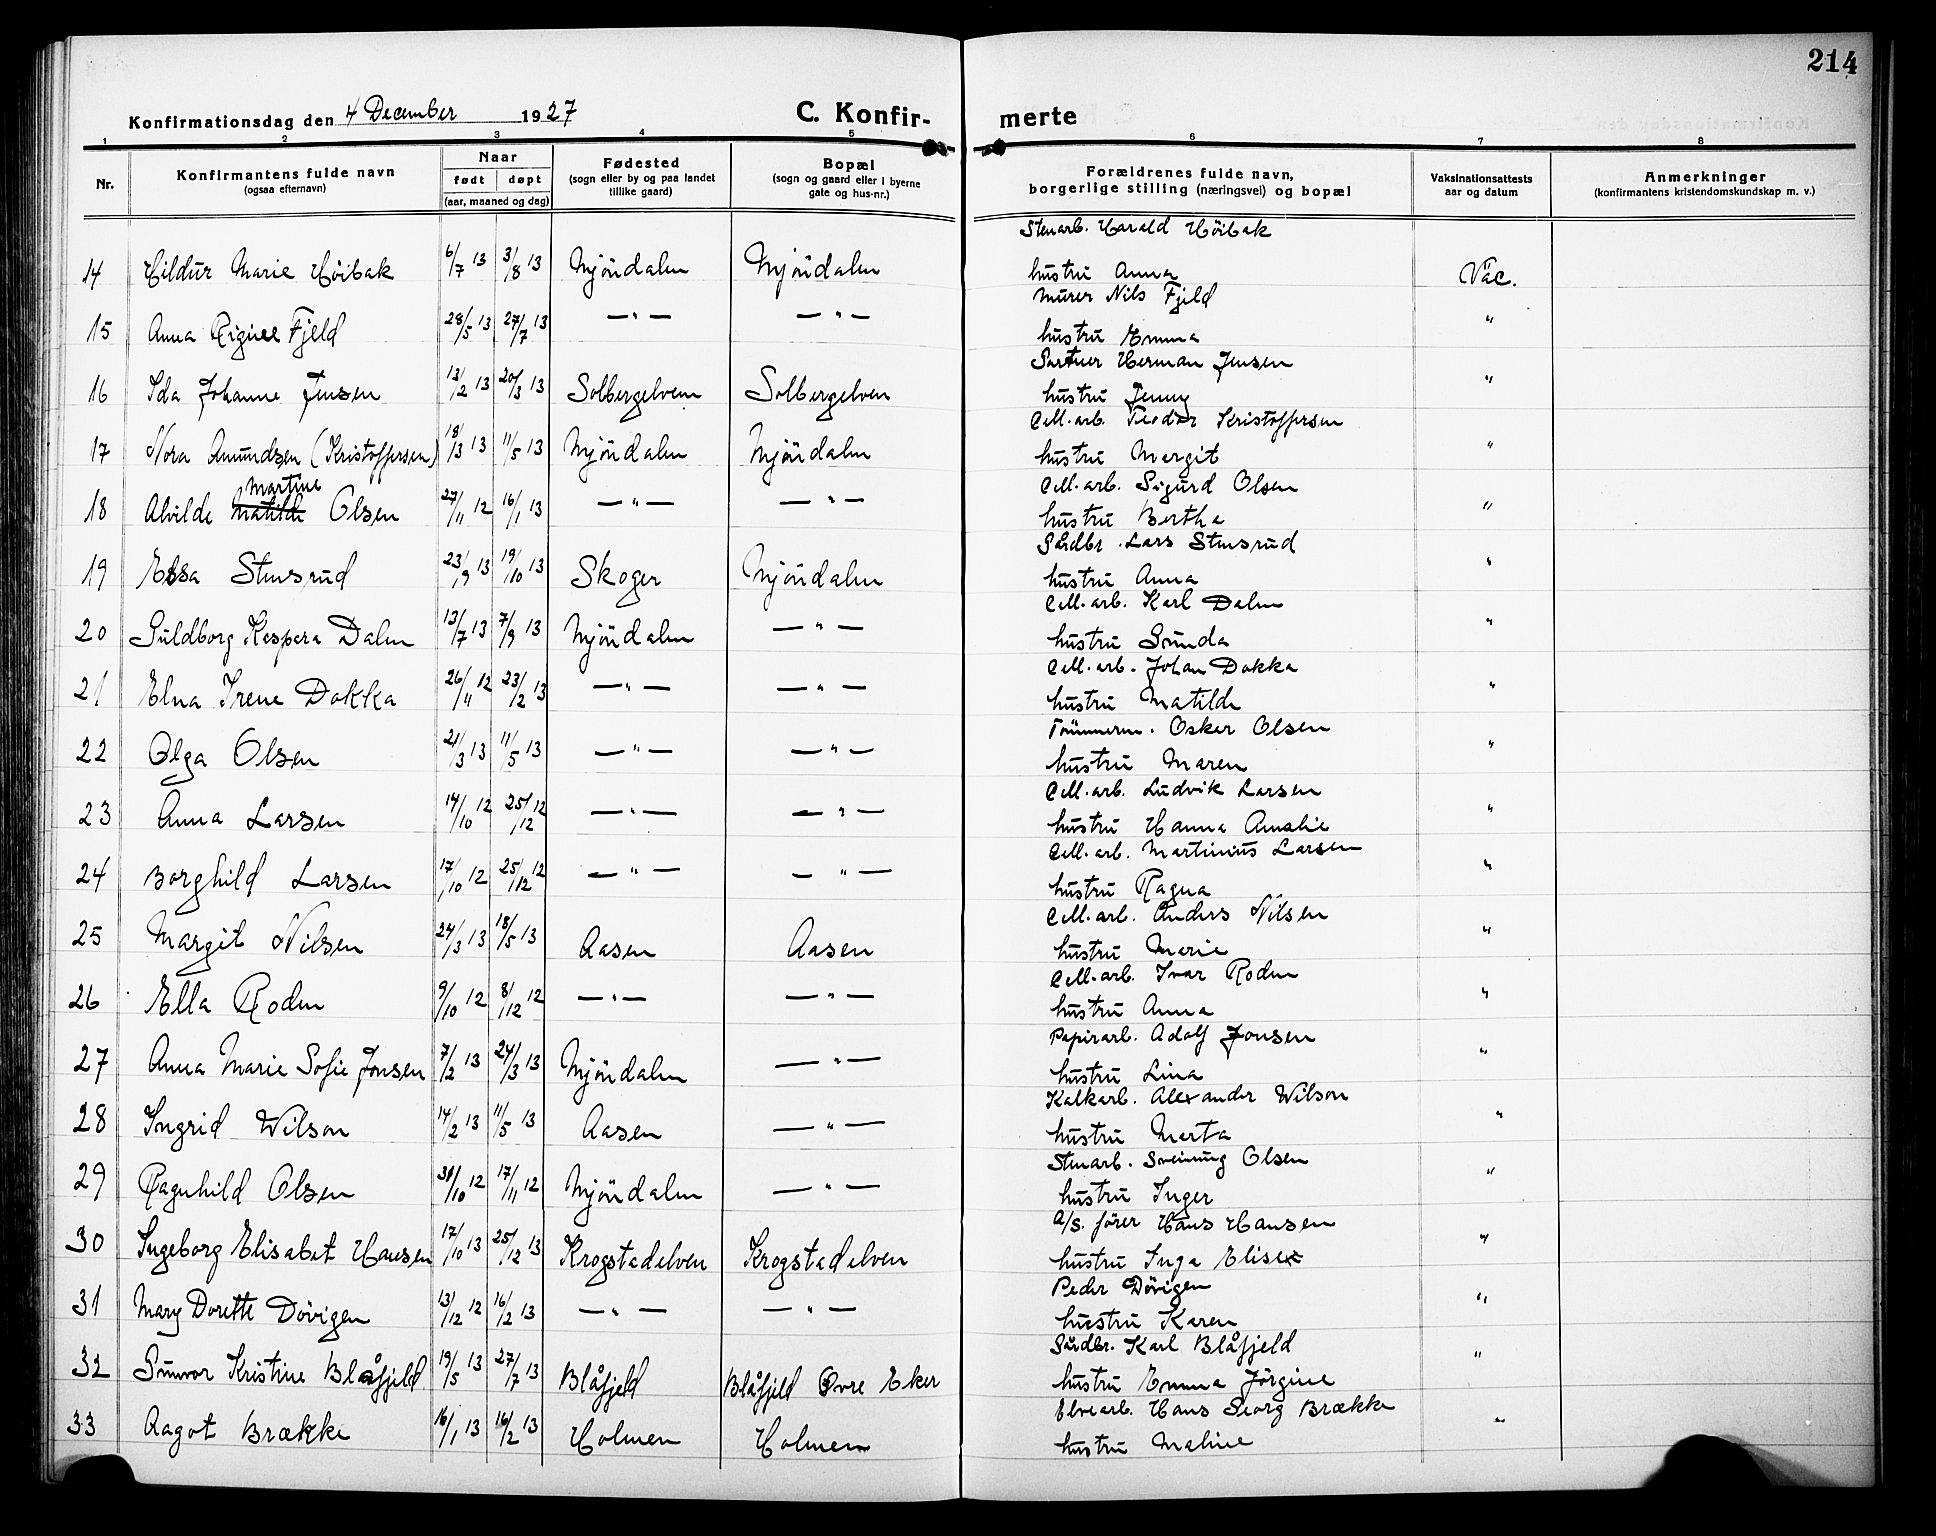 214
Konfirmationsdag den 4 December 1927 C. Konfir- merte
1 2 3 4 5 6 7 8
Nr. Konfirmantens fulde navn (ogsaa efternavn) Naar født døpt (aar, maaned og dag) Fødested (sogn eller by og paa landet tillike gaard) Bopæl (sogn og gaard eller i byerne gate og hus-nr.) Forældrenes fulde navn, borgerlige stilling (næringsvei) og bopæl Vaksinationsattests aar og datum Anmerkninger (konfirmantens kristendomskundskap m. v.)
Stenarb. Harald Höibak
14 Hildur Marie Höibak 6/7 13 3/8 13 Mjöndalen Mjöndalen hustru Anna Vac.
Murer Nils Fjeld
15 Anna Fjeld 28/5 13 27/7 13 — " — — " — hustru Emma "
Gartner Herman Jensen
16 Ida Johanne Jensen 13/2 13 20/3 13 Solbergelven Solbergelven hustru Jenny "
Cell. arb. Teodor Kristoffersen
17 Nora Amundsen (Kristoffersen) 18/3 13 11/5 13 Mjöndalen Mjöndalen hustru Margit "
Martine
Cell. arb. Sigurd Olsen
18 Alvilde Matilde Olsen 27/11 12 16/1 13 — " — — " — hustru Bertha "
Gårdbr. Lars Stensrud
19 Elsa Stensrud 23/9 13 19/10 13 Skoger Mjöndalen hustru Anna "
Cell. arb. Karl Dalen
20 Guldborg Kaspara Dalen 13/7 13 7/9 13 Mjöndalen — " — hustru Gunda "
Cell. arb. Johan Dokka
21 Elna Irene Dokka 26/11 12 23/2 13 — " — — " — hustru Matilde "
Tömmerm. Oskar Olsen
22 Olga Olsen 21/3 13 11/5 13 — " — — " — hustru Maren "
Cell. arb. Ludvik Larsen
23 Anna Larsen 14/10 12 25/12 12 — " — — " — hustru Hanna Amalie "
Cell. arb. Martinius Larsen
24 Borghild Larsen 17/10 12 25/12 12 — " — — " — hustru Ragna "
Cell. arb. Anders Nilsen
25 Margit Nilsen 24/3 13 18/5 13 Aasen Aasen hustru Marie "
Cell. arb. Ivar Roden
26 Ella Roden 9/10 12 8/12 12 — " — — " — hustru Anna "
Papirarb. Adolf Jonsen
27 Anna Marie Sofie Jonsen 7/2 13 24/3 13 Mjöndalen — " — hustru Lina "
Kalkarb. Alexander Wilson
28 Ingrid Wilson 14/2 13 11/5 13 Aasen — " — hustru Marta "
Stenarb. Sveinung Olsen
29 Ragnhild Olsen 30/10 12 17/11 12 Mjöndalen — " — hustru Inger "
A/S. förer Hans Hansen
30 Ingeborg Elisabet Hansen 17/10 13 25/12 13 Krogstadelven Krogstadelven hustru Inga Elise "
Peder Dövigen
31 Mary Dorette Dövigen 13/12 12 16/2 13 — " — — " — hustru Karen "
Gårdbr. Karl Blåfjeld
32 Gunvor Kristine Blåfjeld 19/5 13 27/7 13 Blåfjeld Blåfjeld Övre Eker hustru Emma Jörgine "
Elvearb. Hans Georg Brække
33 Aagot Brække 16/1 13 16/2 13 Holmen Holmen hustru Maline "